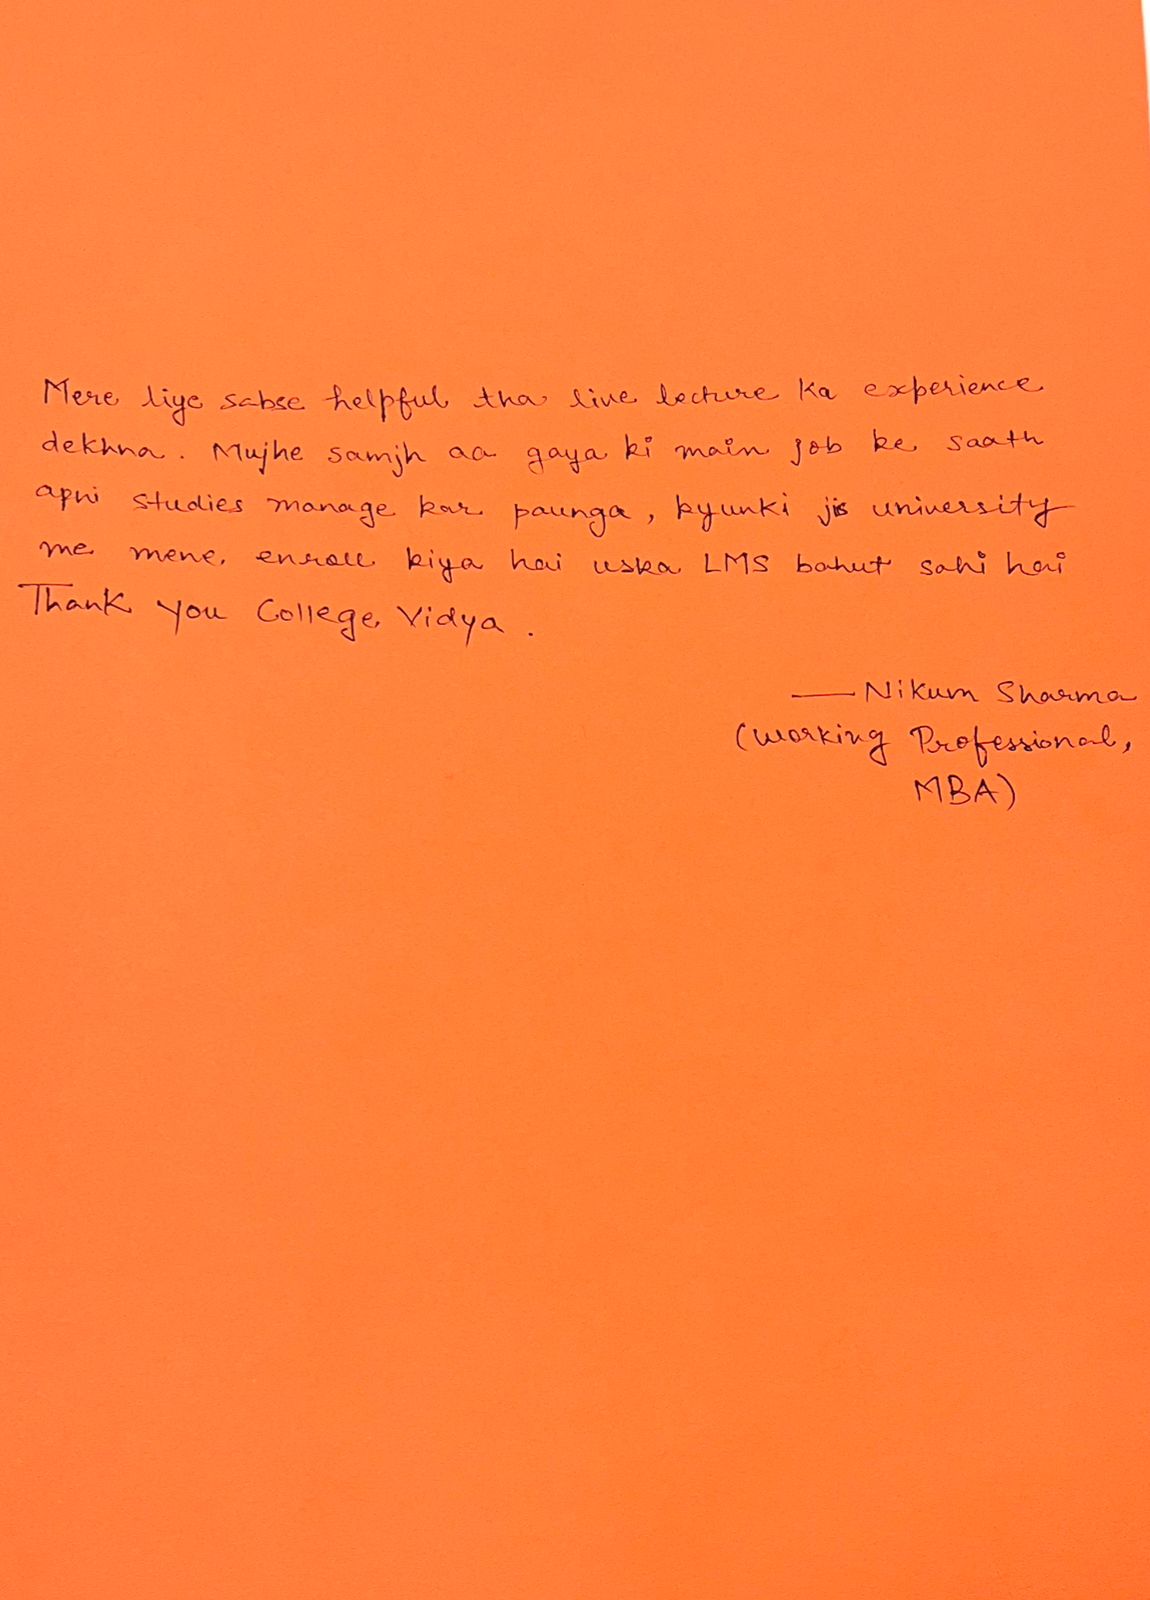 Mere liye sabse helpful tha live lecture ka experience
dekhna. Mujhe samjh aa gaya ki main job ke saath
apni studies manage kar paunga, kyunki jis university
me mene enroll kiya hai uska LMS bahut sahi hai
Thank You College Vidya.
— Nikum Sharma
(Working Professional,
MBA)